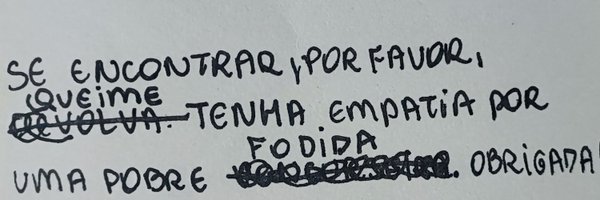 SE ENCONTRAR, POR FAVOR,
QUEIME
DEVOLVA. TENHA EMPATIA POR
FODIDA
UMA POBRE . OBRIGADA!